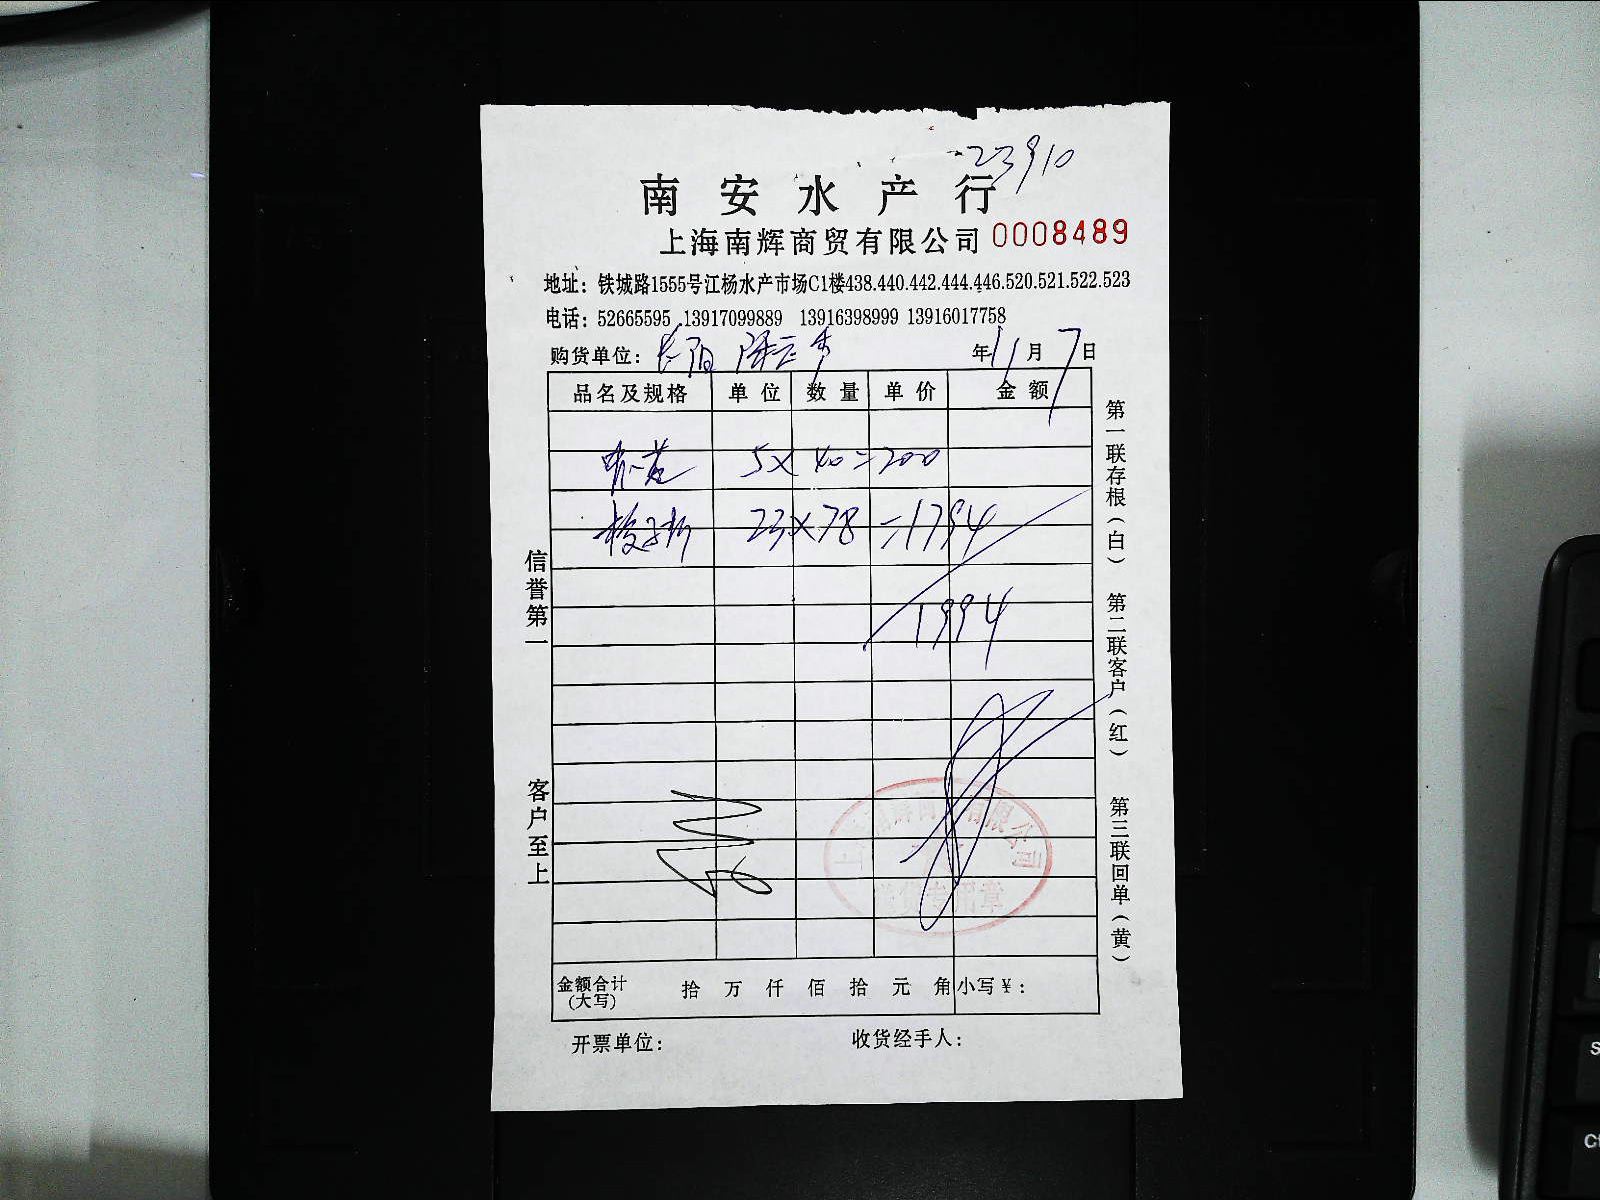 23910
南安水产行
上海南辉商贸有限公司 0008489
地址：铁城路1555号江杨水产市场C1楼438.440.442.444.446.520.521.522.523
电话：52665595 13917099889 13916398999 13916017758
购货单位： 年11月7日
品名及规格 单位 数量 单价 金额
5×40=200
梭子 23×78=1794
1994
金额合计（大写） 拾 万 仟 佰 拾 元 角 小写￥：
开票单位： 收货经手人：
信誉第一
客户至上
第一联存根（白）
第二联客户（红）
第三联回单（黄）